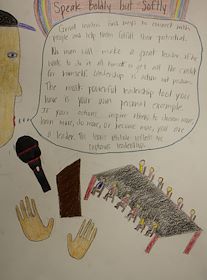 Speak Boldly but Softly
Great leaders find ways to connect with
people and help them fulfill their potential.
No man will make a great leader who
wants to do it all himself or get all the credit
for himself. Leadership is action not position.
The most powerful leadership tool you
have is your own personal example.
If your actions inspire others to dream more,
learn more, do more, or become more, you are
a leader.